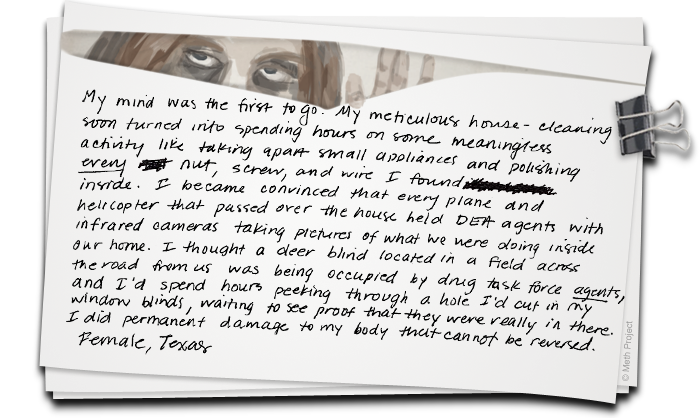 My mind was the first to go. My meticulous house-cleaning
soon turned into spending hours on some meaningless
activity like taking apart small appliances and polishing
every nut, screw, and wire I found
inside. I became convinced that every plane and
helicopter that passed over the house held DEA agents with
infrared cameras taking pictures of what we were doing inside
our home. I thought a deer blind located in a field across
the road from us was being occupied by drug task force agents,
and I'd spend hours peeking through a hole I'd cut in my
window blinds, waiting to see proof that they were really in there.
I did permanent damage to my body that cannot be reversed.
Female, Texas
© Meth Project